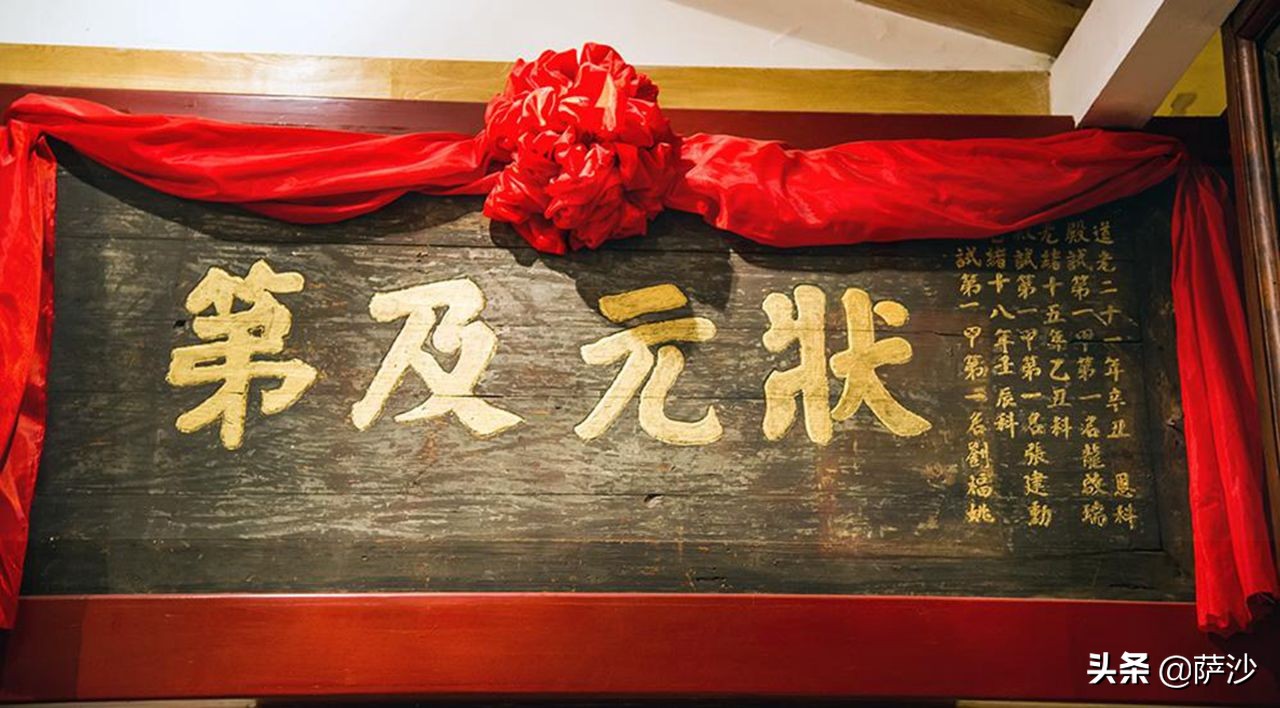 道光二十一年辛丑 恩科
殿試第一甲第一名龍啟瑞
光緒十五年乙丑科
試第一甲第一名張建勳
緒十八年壬辰科
試第一甲第一名劉福姚
狀元及第
头条 @萨沙